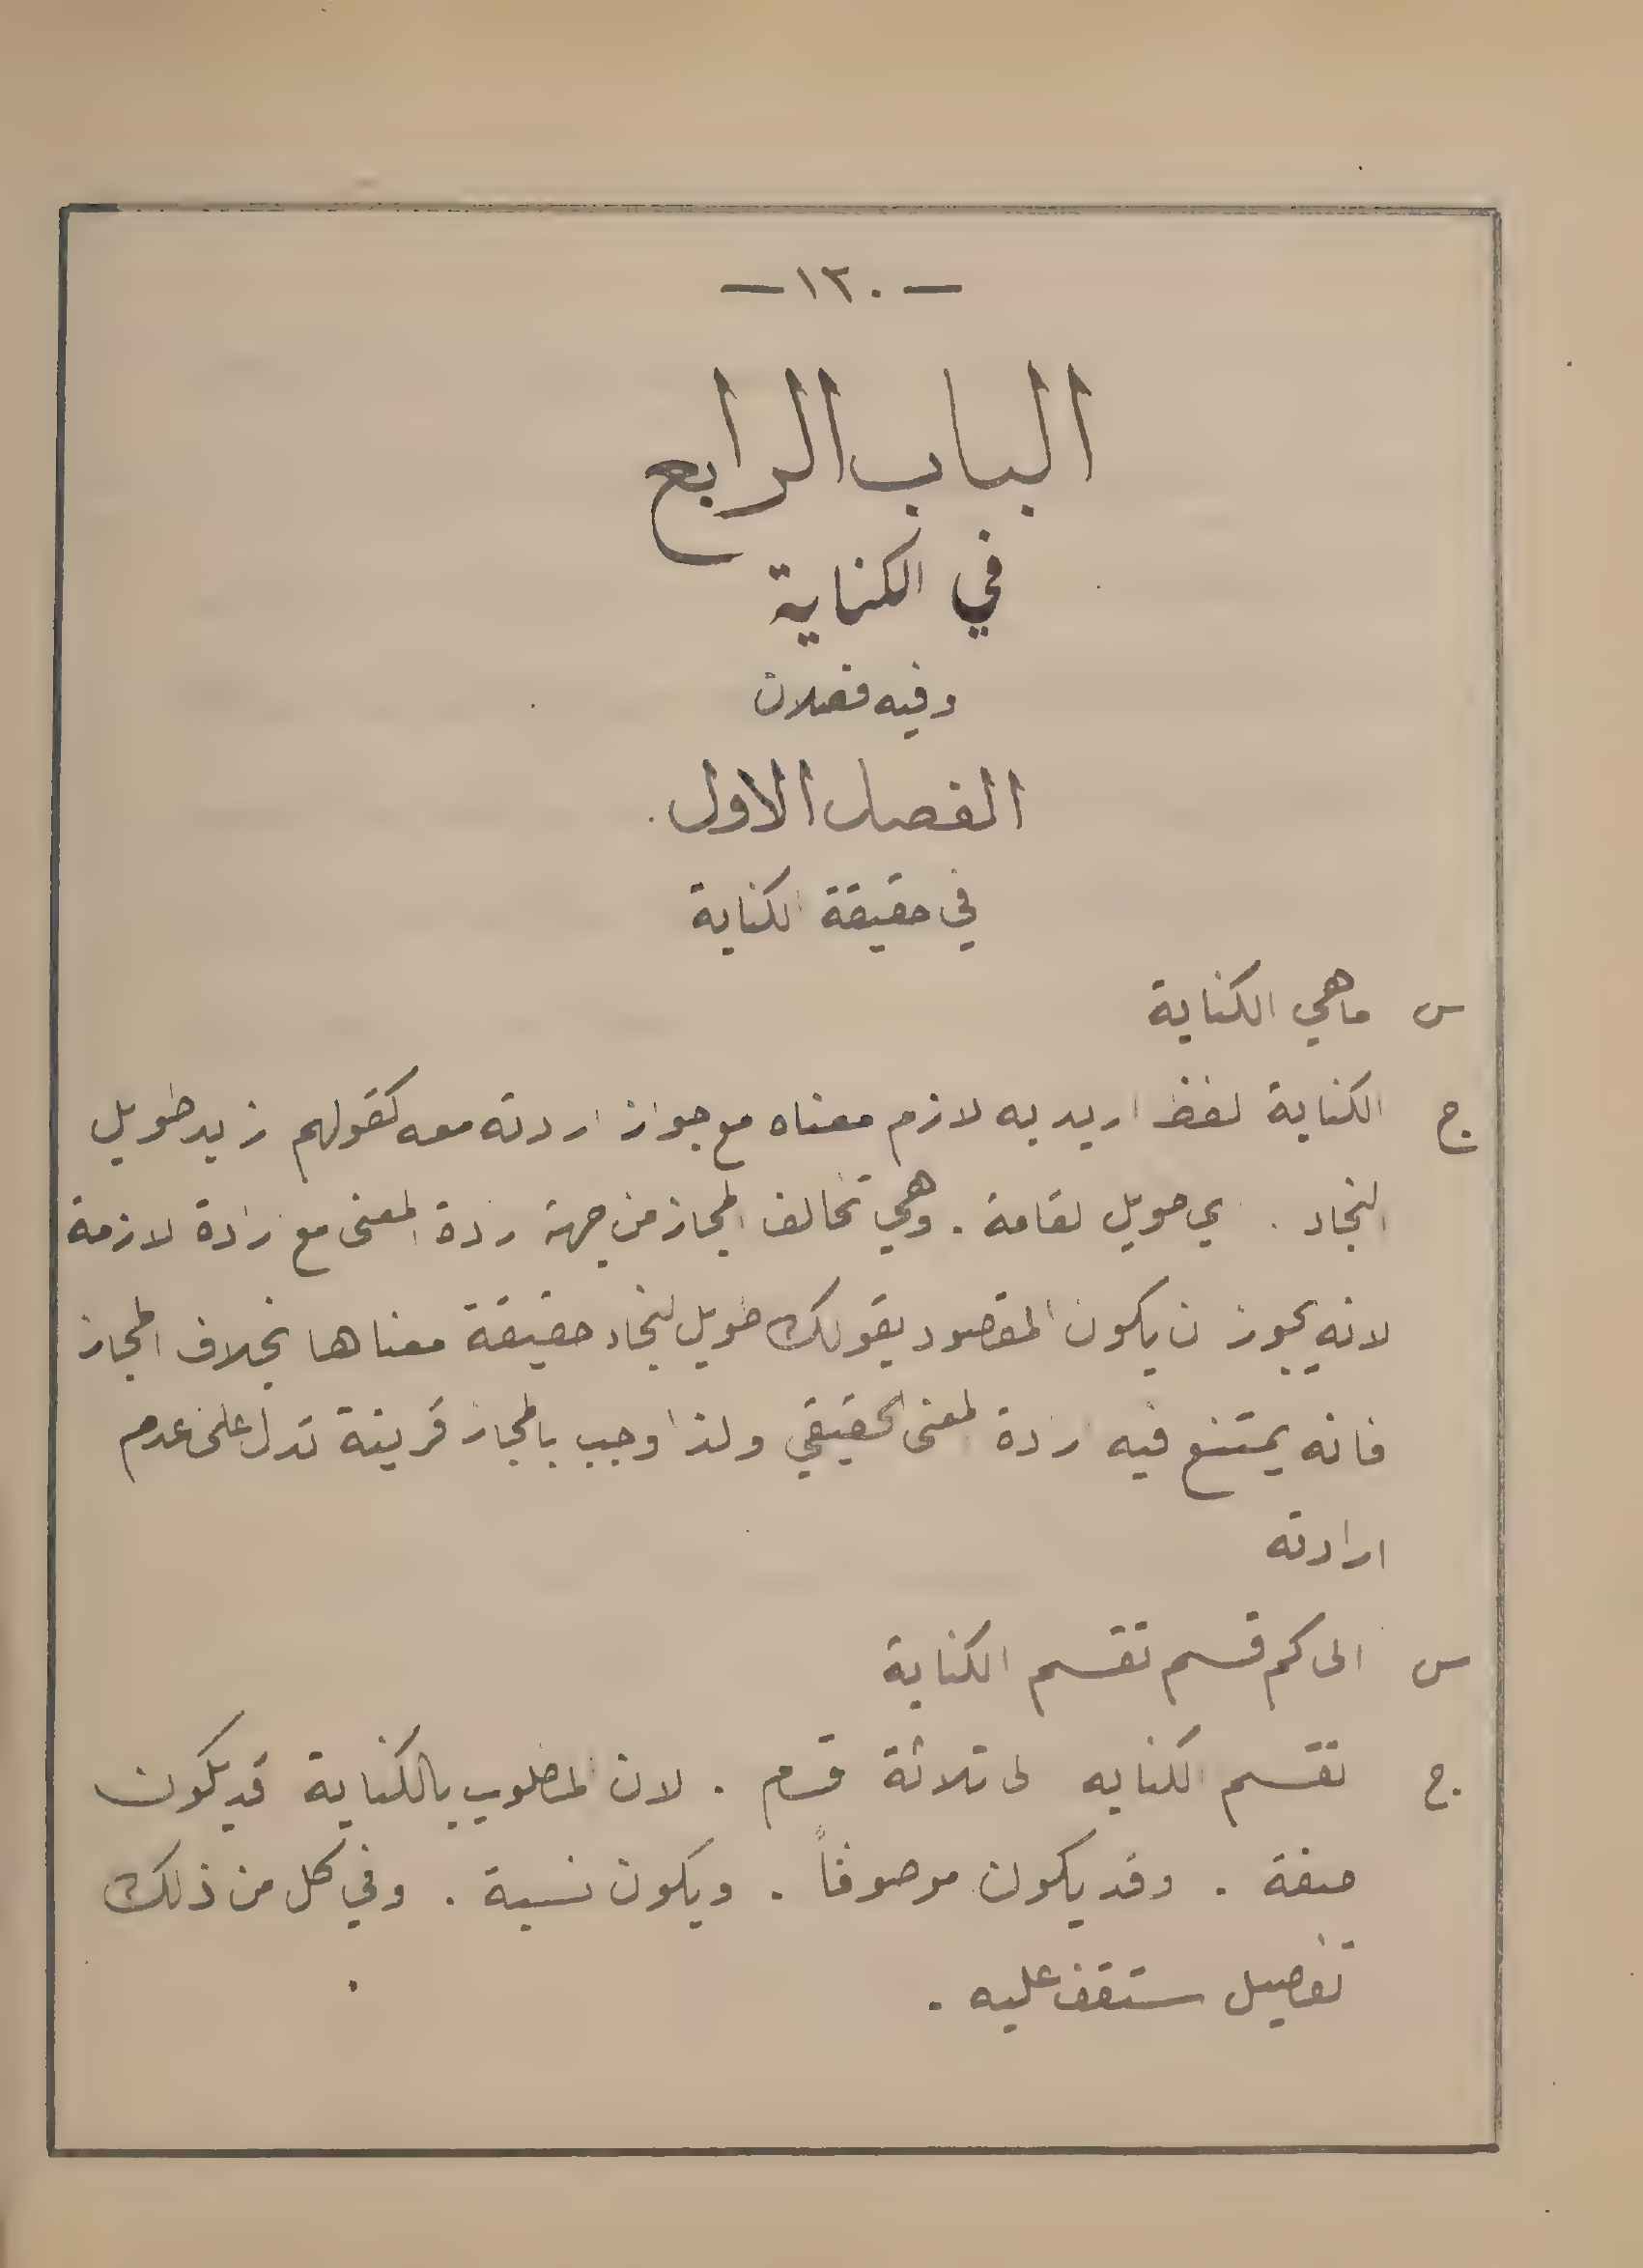 — ١٢٠ —
الباب الرابع
في الكناية
وفيه فصلان
الفصل الاول
في حقيقة الكناية
س ما هي الكناية
ج الكناية لفظ اريد به لازم معناه مع جواز ارادته معه كقولهم زيد طويل
النجاد . اي طويل القامة . وهي تخالف المجاز من جهة ارادة المعنى مع ارادة لازمة
لانه يجوز ان يكون المقصود بقولك طويل النجاد حقيقة معناها بخلاف المجاز
فانه يمتنع فيه ارادة المعنى الحقيقي ولذا وجب بالمجاز قرينة تدل على عدم
ارادته
س الى كم قسم تقسم الكناية
ج . تقسم الكنايه الى ثلاثة اقسام . لان المطلوب بالكناية قد يكون
صفة . وقد يكون موصوفاً . ويكون نسبة . وفي كل من ذلك
تفصيل ستقف عليه .